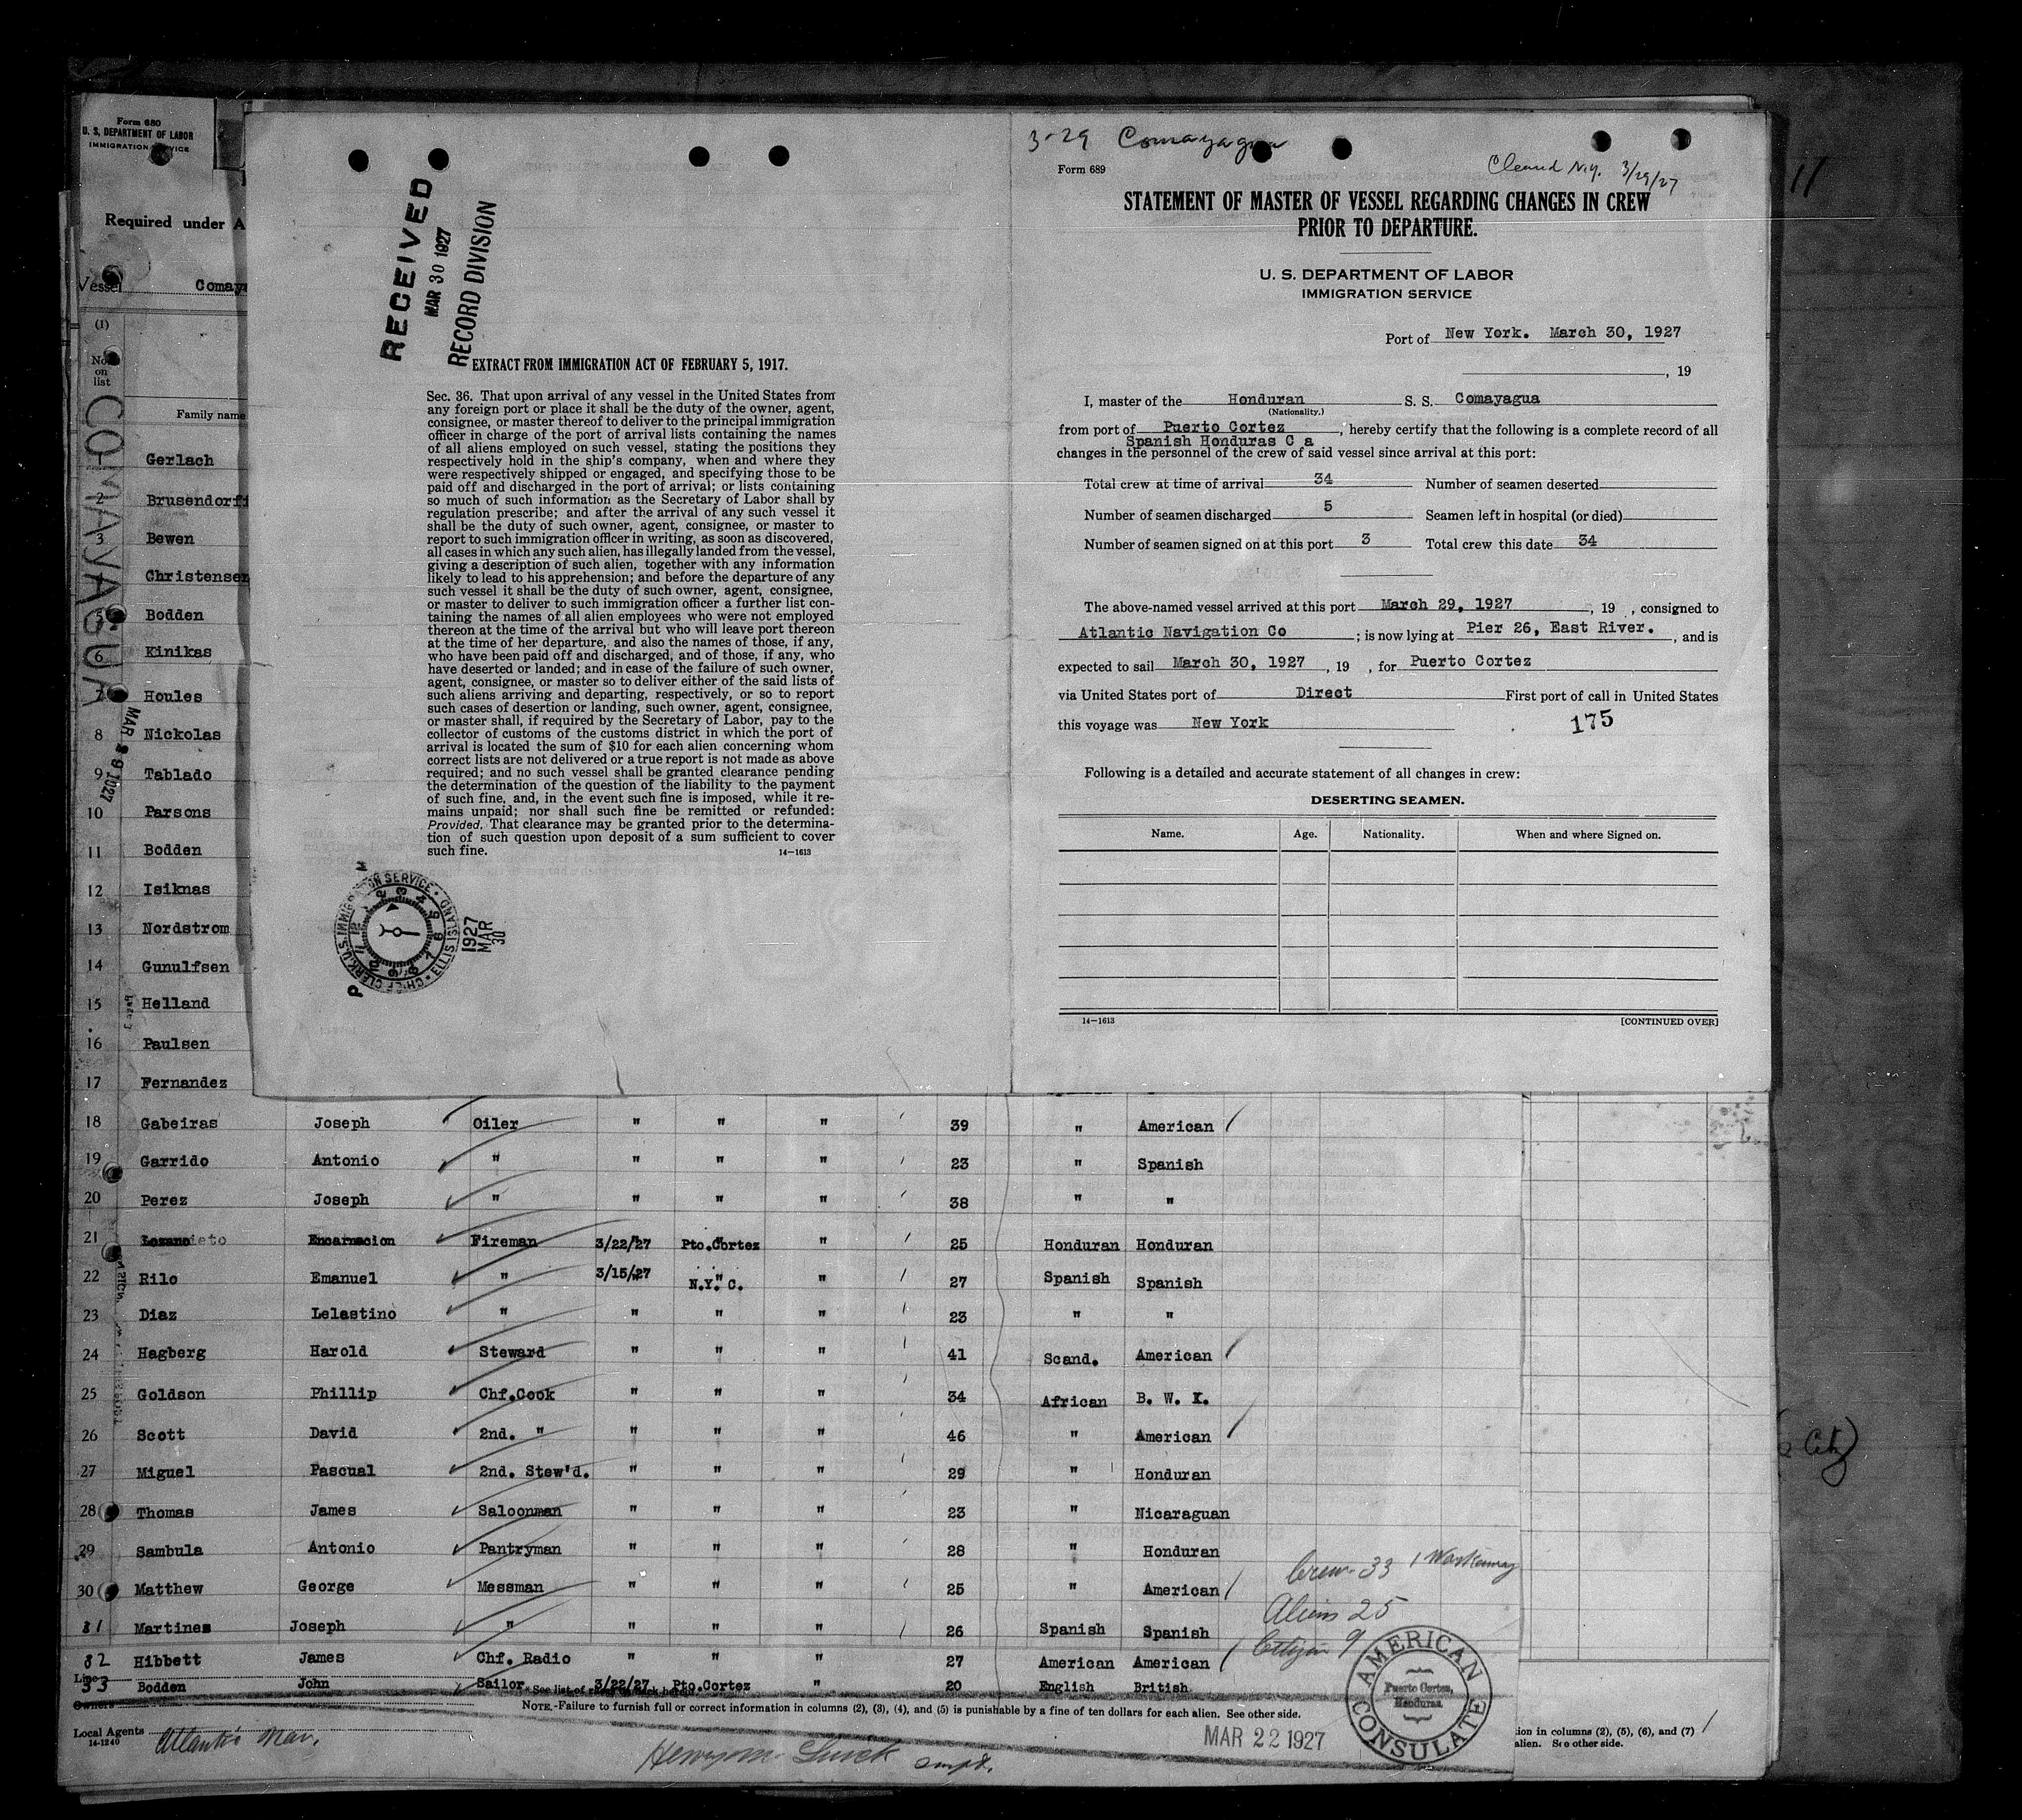 Form 680
U. S. DEPARTMENT OF LABOR
IMMIGRATION SERVICE
Required under A
Vessel Comaya
(1)
No. on list
Family name
COMAYAGUA
MAR 29 1927
1 Gerlach
2 Brusendorff
3 Bewen
4 Christensen
5 Bodden
6 Kinikas
7 Houles
8 Nickolas
9 Tablado
10 Parsons
11 Bodden
12 Isiknas
13 Nordstrom
14 Gunulfsen
15 Helland
16 Paulsen
17 Fernandez
RECEIVED
MAR 30 1927
RECORD DIVISION
EXTRACT FROM IMMIGRATION ACT OF FEBRUARY 5, 1917.
Sec. 36. That upon arrival of any vessel in the United States from
any foreign port or place it shall be the duty of the owner, agent,
consignee, or master thereof to deliver to the principal immigration
officer in charge of the port of arrival lists containing the names
of all aliens employed on such vessel, stating the positions they
respectively hold in the ship's company, when and where they
were respectively shipped or engaged, and specifying those to be
paid off and discharged in the port of arrival; or lists containing
so much of such information as the Secretary of Labor shall by
regulation prescribe; and after the arrival of any such vessel it
shall be the duty of such owner, agent, consignee, or master to
report to such immigration officer in writing, as soon as discovered,
all cases in which any such alien, has illegally landed from the vessel,
giving a description of such alien, together with any information
likely to lead to his apprehension; and before the departure of any
such vessel it shall be the duty of such owner, agent, consignee,
or master to deliver to such immigration officer a further list con-
taining the names of all alien employees who were not employed
thereon at the time of the arrival but who will leave port thereon
at the time of her departure, and also the names of those, if any,
who have been paid off and discharged, and of those, if any, who
have deserted or landed; and in case of the failure of such owner,
agent, consignee, or master so to deliver either of the said lists of
such aliens arriving and departing, respectively, or so to report
such cases of desertion or landing, such owner, agent, consignee,
or master shall, if required by the Secretary of Labor, pay to the
collector of customs of the customs district in which the port of
arrival is located the sum of $10 for each alien concerning whom
correct lists are not delivered or a true report is not made as above
required; and no such vessel shall be granted clearance pending
the determination of the question of the liability to the payment
of such fine, and, in the event such fine is imposed, while it re-
mains unpaid; nor shall such fine be remitted or refunded:
Provided, That clearance may be granted prior to the determina-
tion of such question upon deposit of a sum sufficient to cover
such fine.
14—1613
CHIEF CLERK U. S. IMMIGRATION SERVICE · ELLIS ISLAND
1927 MAR 30
3-29 Comayagua
Form 689
Cleared N.Y. 3/29/27
STATEMENT OF MASTER OF VESSEL REGARDING CHANGES IN CREW
PRIOR TO DEPARTURE.
U. S. DEPARTMENT OF LABOR
IMMIGRATION SERVICE
Port of New York. March 30, 1927
, 19
I, master of the Honduran S. S. Comayagua
(Nationality.)
from port of Puerto Cortez, hereby certify that the following is a complete record of all
Spanish Honduras C a
changes in the personnel of the crew of said vessel since arrival at this port:
Total crew at time of arrival 34 Number of seamen deserted
Number of seamen discharged 5 Seamen left in hospital (or died)
Number of seamen signed on at this port 3 Total crew this date 34
The above-named vessel arrived at this port March 29, 1927, 19 , consigned to
Atlantic Navigation Co; is now lying at Pier 26, East River., and is
expected to sail March 30, 1927, 19 , for Puerto Cortez
via United States port of Direct First port of call in United States
this voyage was New York 175
Following is a detailed and accurate statement of all changes in crew:
DESERTING SEAMEN.
Name. Age. Nationality. When and where Signed on.
14—1613 [CONTINUED OVER]
11
18 Gabeiras Joseph Oiler " " " 39 " American
19 Garrido Antonio " " " " 23 " Spanish
20 Perez Joseph " " " " 38 " "
21 Encarnacion Fireman 3/22/27 Pto.Cortez " 25 Honduran Honduran
22 Rilo Emanuel " 3/15/27 N.Y. C. " 27 Spanish Spanish
23 Diaz Lelastino " " " " 23 " "
24 Hagberg Harold Steward " " " 41 Scand. American
25 Goldson Phillip Chf.Cook " " " 34 African B. W. I.
26 Scott David 2nd. " " " " 46 " American
27 Miguel Pascual 2nd. Stew'd. " " " 29 " Honduran
28 Thomas James Saloonman " " " 23 " Nicaraguan
29 Sambula Antonio Pantryman " " " 28 " Honduran
30 Matthew George Messman " " " 25 " American
31 Martines Joseph " " " " 26 Spanish Spanish
32 Hibbett James Chf. Radio " " " 27 American American
33 Bodden John Sailor 3/22/27 Pto.Cortez " 20 English British
Crew 33 1 Workaway
Aliens 25
Citizen 9
Line
Owners
NOTE.-Failure to furnish full or correct information in columns (2), (3), (4), and (5) is punishable by a fine of ten dollars for each alien. See other side.
Local Agents Atlantic Nav.
14-1240
MAR 22 1927
AMERICAN CONSULATE
Puerto Cortes, Honduras
tion in columns (2), (5), (6), and (7)
alien. See other side.